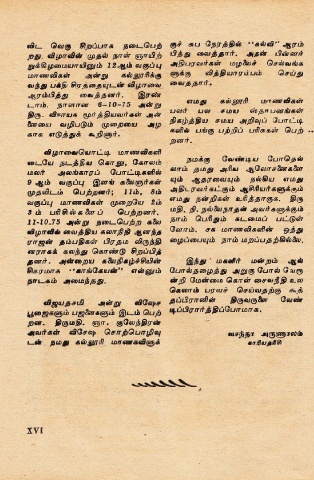 விட வெகு சிறப்பாக நடைபெற்
றது. விழாவின் முதல் நாள் ஞாயிற்
றுக்கிழமையாயினும் 12ஆம் வகுப்பு
மாணவிகள் அன்று கல்லூரிக்கு
வந்து பக்தி சிரத்தையுடன் விழாவை
ஆரம்பித்து வைத்தனர். இரண்
டாம் நாளான 6-10-75 அன்று
திரு. விநாயக மூர்த்தியவர்கள் அன்
னையை வழிபடும் முறையை அழ
காக எடுத்துக் கூறினார்.
விழாவையொட்டி மாணவிகளி
டையே நடத்திய கொலு, கோலம்
மலர் அலங்காரப் போட்டிகளில்
9 ஆம் வகுப்பு இளங் கலைஞர்கள்
முதலிடம் பெற்றனர்; 11ம், 8ம்
வகுப்பு மாணவிகள் முறையே 2ம்
3ம் பரிசில்களைப் பெற்றனர்.
11-10.75 அன்று நடைபெற்ற கலை
விழாவில் வைத்திய கலாநிதி ஆனந்த
ராஜன் தம்பதிகள் பிரதம விருந்தி
னராகக் கலந்து கொண்டு சிறப்பித்
தனர். அன்றைய கலைநிகழ்ச்சியின்
சிகரமாக "காங்கேயன்" என்னும்
நாடகம் அமைந்தது.
விஜயதசமி அன்று விஷேச
பூஜைகளும் பஜனைகளும் இடம் பெற்
றன. திருமதி. ஞா. குலேந்திரன்
அவர்கள் விசேஷ சொற்பொழிவு
டன் நமது கல்லூரி மாணவிளுக்
குச் சுப நேரத்தில் "கல்வி" ஆரம்
பித்து வைத்தார். அதன் பின்னர்
அதிபரவர்கள் மழலைச் செல்வங்க
ளுக்கு வித்தியாரம்பம் செய்து
வைத்தார்.
எமது கல்லூரி மாணவிகள்
பலர் பல சமய ஸ்தாபனங்கள்
நிகழ்த்திய சமய அறிவுப் போட்டி
களில் பங்கு பற்றிப் பரிசுகள் பெற்
றனர்.
நமக்கு வேண்டிய போதெல்
லாம் தமது அரிய ஆலோசனைகளை
யும் ஆதரவையும் நல்கிய எமது
அதிபரவர்கட்கும் ஆசிரியர்களுக்கும்
எமது நன்றிகள் உரித்தாகுக. திரு
மதி, நி, நல்லைநாதன் அவர்களுக்கும்
நாம் பெரிதும் கடமைப் பட்டுள்
ளோம். சக மாணவிகளின் ஒத்து
ழைப்பையும் நாம் மறப்பதற்கில்லை.
இந்து மகளிர் மன்றம் ஆல்
போல்தழைத்து அறுகு போல் வேரூ
ன்றி மேன்மை கொள் சைவநீதி உல
கெலாம் பரவச் செய்வதற்கு கூத்
தப்பிரானின் திருவருளை வேண்
டிப்பிரார்த்திப்போமாக.
வசந்தா அருணாசலம்
காரியதரிசி
XVI